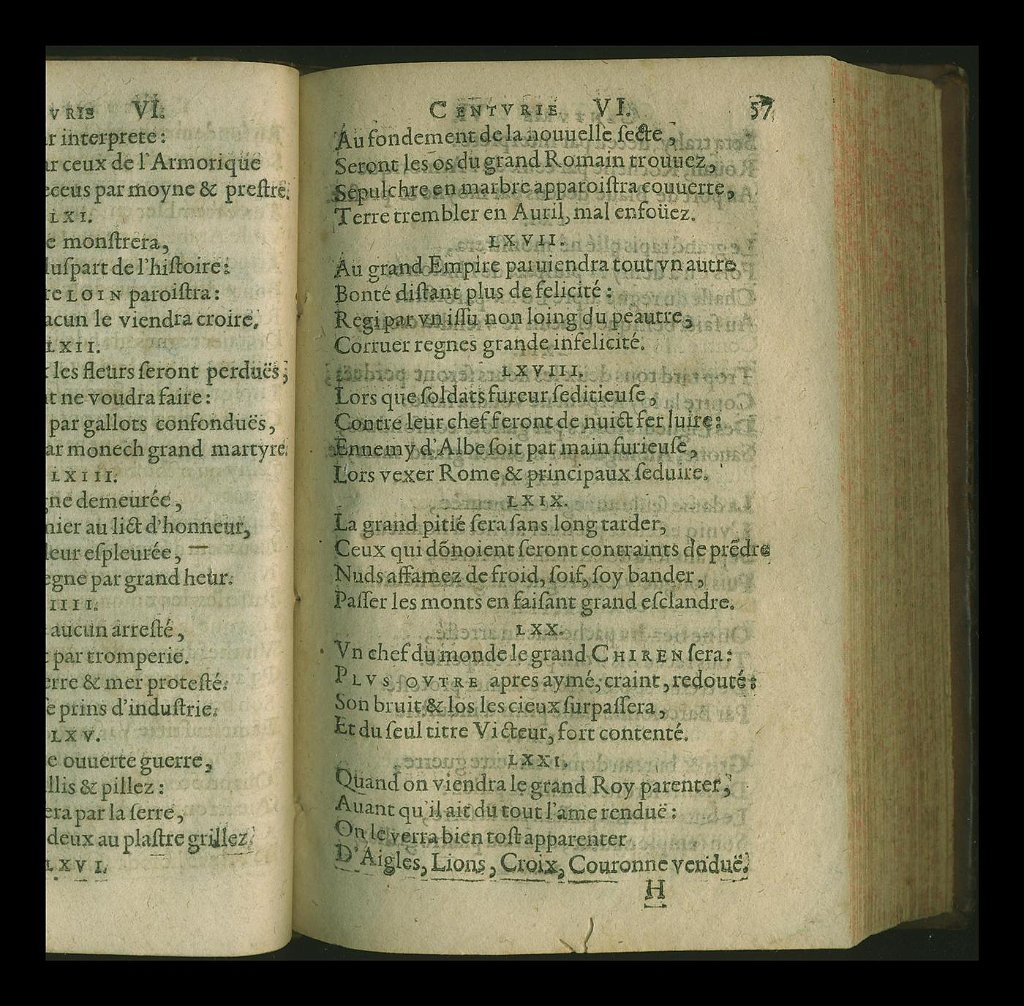 VRIE VI.
r interprete:
r ceux de l'Armorique
ceus par moyne & prestre.
LXI.
e monstrera,
luspart de l'histoire:
re LOIN paroistra:
acun le viendra croire.
LXII.
les fleurs seront perduës;
t ne voudra faire:
par gallots confonduës,
ar monech grand martyre.
LXIII.
ne demeurée,
nier au lict d'honneur,
eur espleurée,
egne par grand heur.
IIII.
aucun arresté,
par tromperie.
erre & mer protesté.
e prins d'industrie.
LXV.
e ouuerte guerre,
llis & pillez:
era par la serre,
deux au plastre grillez.
LXVI.
CENTVRIE VI. 57
Au fondement de la nouuelle secte,
Seront les os du grand Romain trouuez,
Sepulchre en marbre apparoistra couuerte,
Terre trembler en Auril, mal enfoüez.
LXVII.
Au grand Empire paruiendra tout vn autre
Bonté distant plus de felicité:
Regi par vn issu non loing du peautre,
Corruer regnes grande infelicité.
LXVIII.
Lors que soldats fureur seditieuse,
Contre leur chef feront de nuict fer luire:
Ennemy d'Albe soit par main furieuse,
Lors vexer Rome & principaux seduire.
LXIX.
La grand pitié sera sans long tarder,
Ceux qui dõnoient seront contraints de prẽdre
Nuds affamez de froid, soif, soy bander,
Passer les monts en faisant grand esclandre.
LXX.
Vn chef du monde le grand CHIREN sera:
PLVS OVTRE apres aymé, craint, redouté:
Son bruit & los les cieux surpassera,
Et du seul titre Victeur, fort contenté.
LXXI.
Quand on viendra le grand Roy parenter,
Auant qu'il ait du tout l'ame renduë:
On le verra bien tost apparenter
D'Aigles, Lions, Croix, Couronne venduë.
H